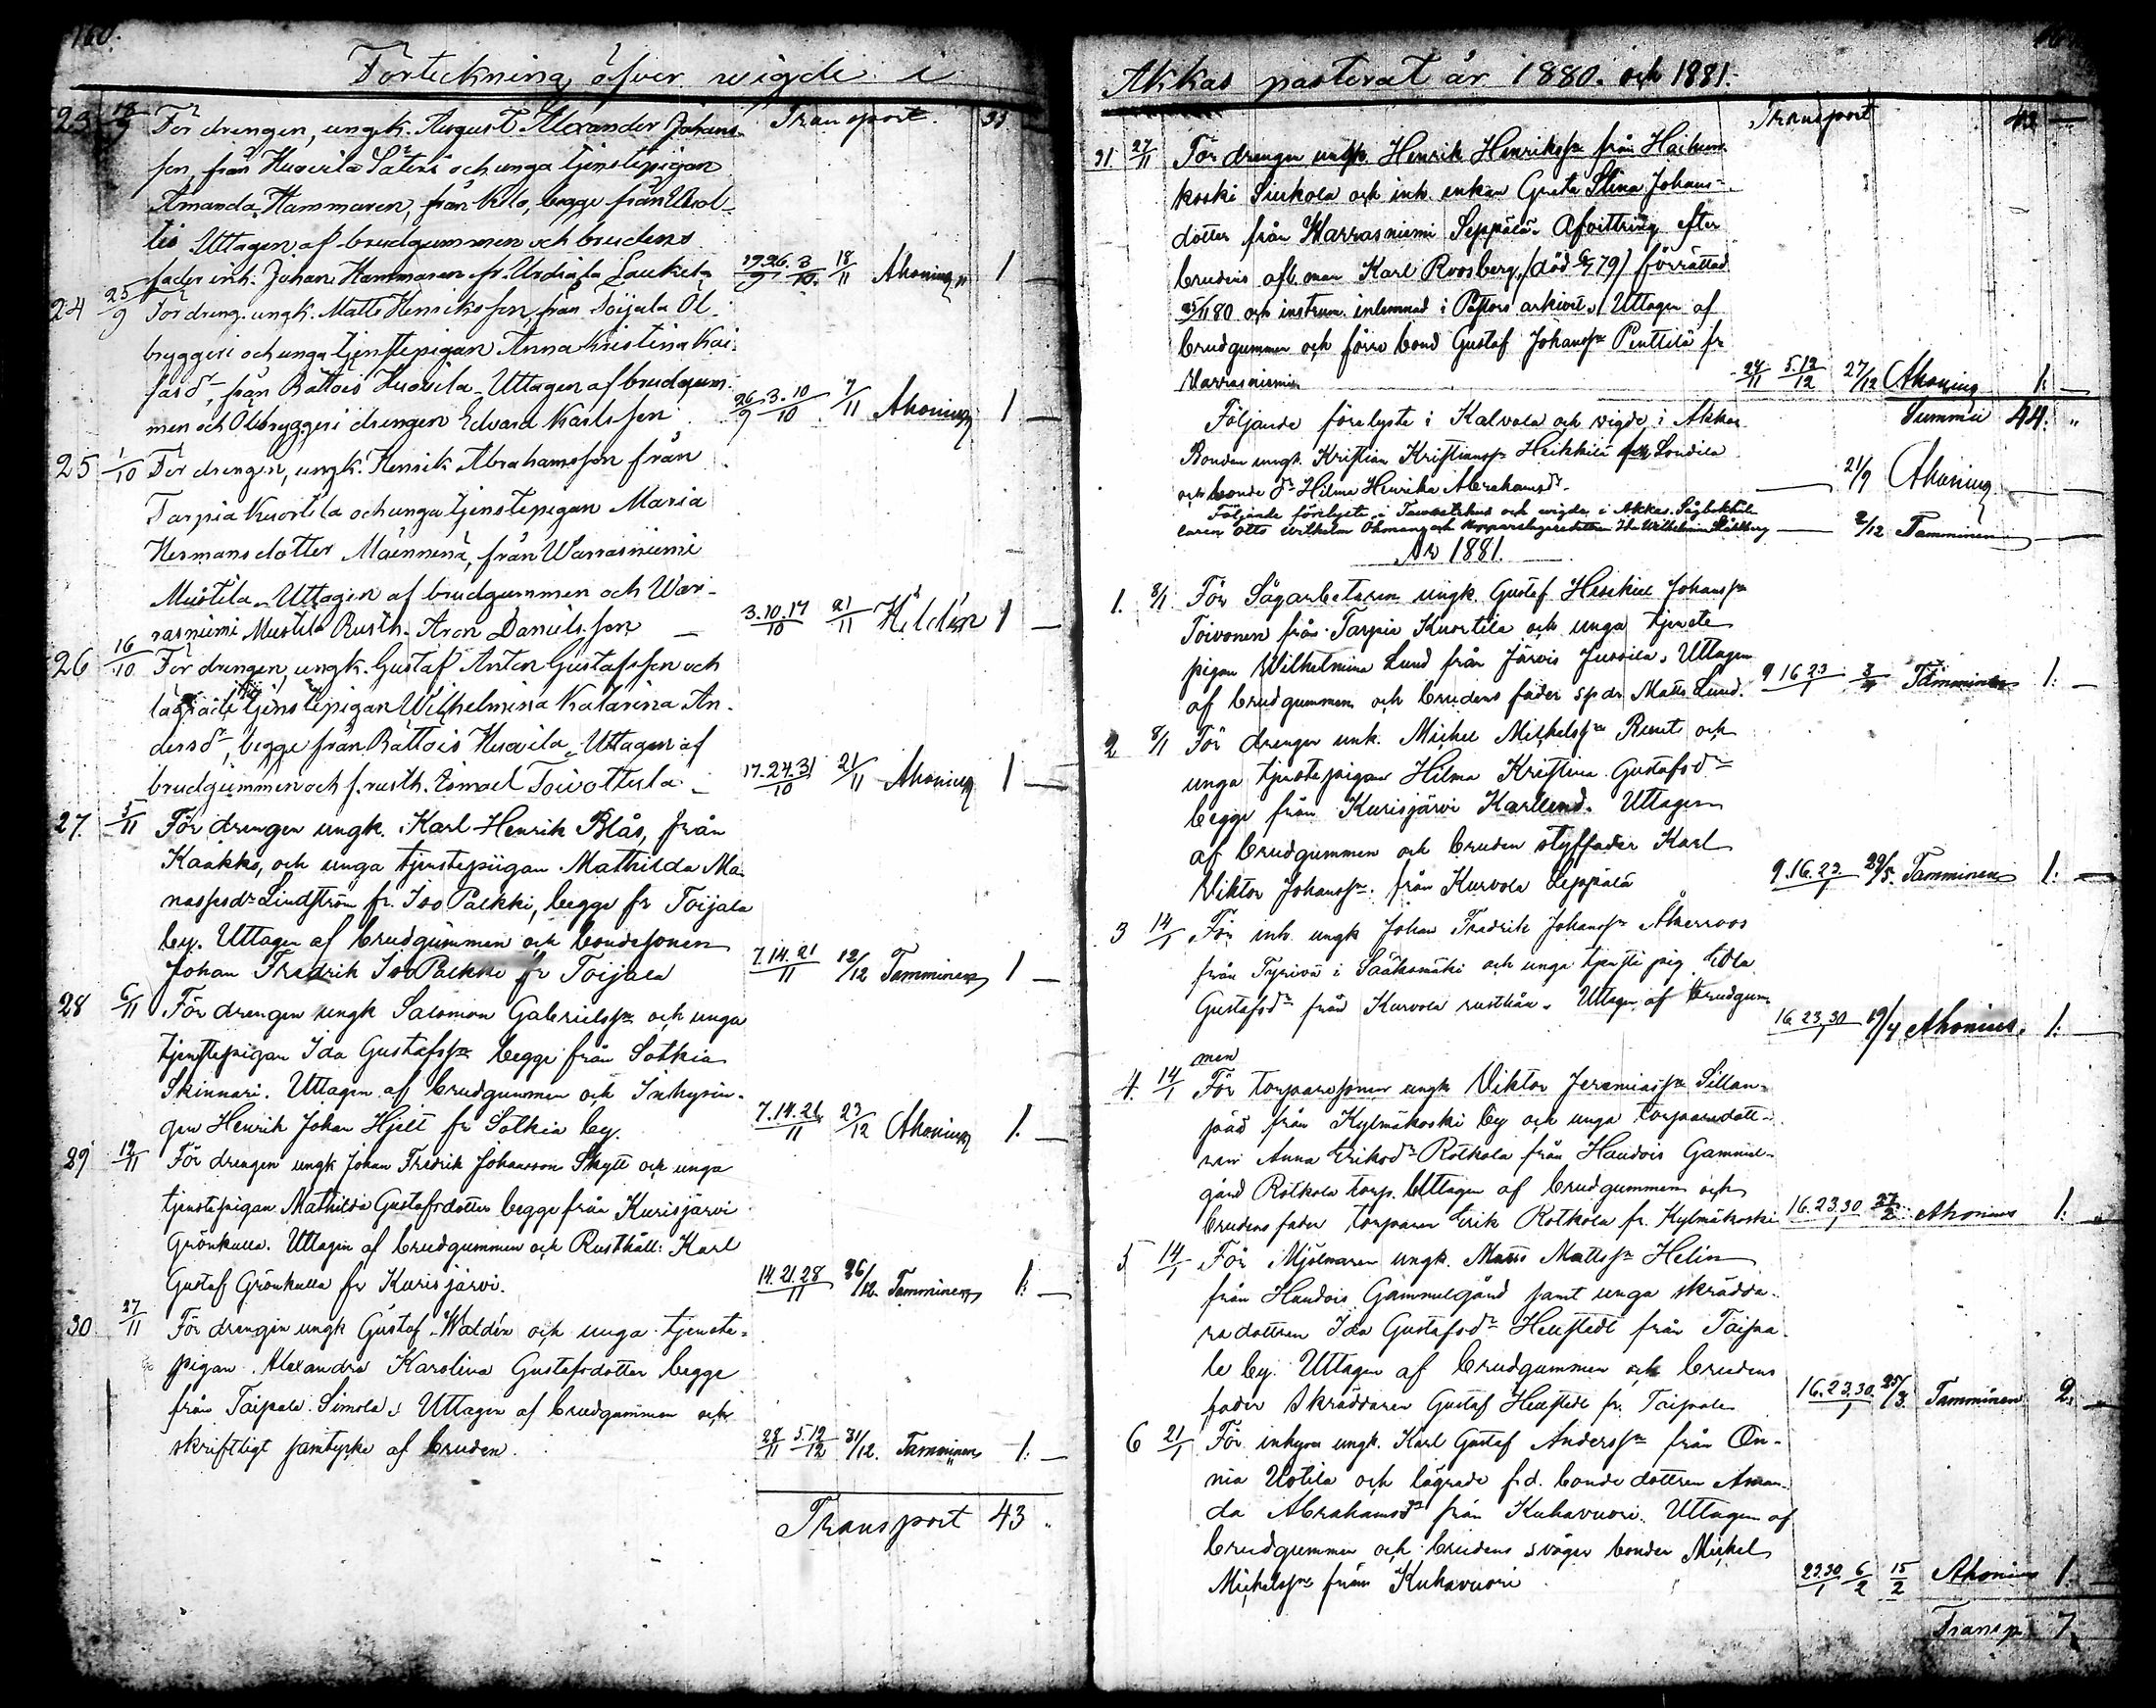 160.
Förteckning öfver wigde i
Transport. 35
23 18/9 För drengen, ungk. August Alexander Johans-
son, från Huovila Säteri och unga tjenstepigan
Amanda Hammaren, från Kilo, begge från
Uttagen af brudgummen och brudens
fader inh. Johan Hammaren fr. Urdiala Laukela 19.26./9 3/10. 18/11 Ahonius 1
24 25/9 För dreng. ungk. Matts Henriksson, från Toijala Öl-
bryggeri och unga tjenstepigan Anna Kristina Kai-
sasdr, från Rättois Huovila. Uttagen af brudgum-
men och Ölbryggeri drengen Edvard Karlsson 26/9 3.10/10 7/11 Ahonius 1 —
25 1/10 För drengen, ungk. Henrik Abrahamsson från
Tarpia Kuortila och unga tjenstepigan Maria
Hermansdotter Mäennenä, från Warrasniemi
Mustila. Uttagen af brudgummen och War-
rasniemi Mustila Rusth. Aron Danielsson — 3.10.17/10 21/11 Heldén 1 —
26 16/10 För drengen, ungk. Gustaf Anton Gustafsson och
lägrade tjenstepigan Wilhelmina Katarina An-
dersdr, begge från Rättois Huovila. Uttagen af
brudgummen och f. rusth. Ismael Toivottula — 17.24.31/10 21/11 Ahonius 1 —
27. 5/11 För drengen ungk. Karl Henrik Blås, från
Kaakko, och unga tjenstepigan Mathilda Ma-
nassesdr Lindström fr. Iso Paekki, begge fr Toijala
by. Uttagen af brudgummen och bondesonen
Johan Fredrik Iso Paekki fr Toijala 7.14.21/11 12/12 Tamminen 1 —
28 6/11 För drengen ungk Salomon Gabrielssn och unga
tjenstepigan Ida Gustafssn begge från Sotkia
Skinnari. Uttagen af brudgummen och Inhysin-
gen Henrik Johan Hjelt fr Sotkia by. 7.14.21/11 23/12 Ahonius 1. —
29 12/11 För drengen ungk Johan Fredrik Johansson Skytt och unga
tjenstepigan Mathilda Gustafsdotter begge från Kurisjärvi
Grönkulla. Uttagen af brudgummen och Rusthåll: Karl
Gustaf Grönkulla fr Kurisjärvi. 14.21.28/11 26/12. Tamminen 1: —
30 27/11 För drengen ungk Gustaf Waldén och unga tjenste-
pigan Alexandra Karolina Gustafsdotter begge
från Taipale Simola. Uttagen af brudgummen och
skriftligt samtycke af bruden. 28/11 5.12/12 31/12. Tamminen 1: —
Transport 43 „
Akkas pastorat år 1880. och 1881.
Transport 43 —
31. 27/11 För drengen ungk. Henrik Henrikssn från
koski Siukola och inh. enkan Greta Stina Johans-
dotter från Warrasniemi Seppälä. Afvittring efter
brudens afl. man Karl Roosberg, (död 79) förrättad
80 och instrum. inlemnad i Pastors arkivet. Uttagen af
brudgummen och förre bond Gustaf Johanssn Penttilä fr
Varrasniemi 28/11 5.12/12 27/12 Ahonius 1: —
Summa 44. „
Följande förelyste i Kalvola och vigde i Akkas
Bonden ungk. Kristian Kristianssn Heikkilä från Sondila
och bonde dr Hilma Henrika Abrahamsdr — 21/9 Ahonius — —
Följande förelyste i Tavastehus och vigda i Akkas. Sågbokhål-
laren Otto Wilhelm Öhman och Kopparslagaredottren Ida Wilhelmina Ståhlberg — 2/12 Tamminen —
År 1881.
1. 8/1 För Sågarbetaren ungk. Gustaf Hesekiel Johanssn
Toivonen från Tarpia Kuortila och unga tjenste
pigan Wilhelmina Lund från Järvis Jussila. Uttagen
af brudgummen och brudens fader spdr Matts Lund. 9 16 23/1 Tamminen 1: —
2 8/1 För drengen unk. Michel Michelssn Renti och
unga tjenstepigan Hilma Kristina Gustafsdr
begge från Kurisjärvi Karllund. Uttagen
af brudgummen och bruden styffader Karl
Viktor Johanssn. från Kurvola Seppälä 9.16.23./1 29/5. Tamminen 1: —
3 14/1 För inh ungk Johan Fredrik Johanssn Åkerroos
från Tyrivä i Sääksmäki och unga tjenste pig Edla
Gustafsdr från Kurvola rusthån. Uttagen af brudgum-
men 16.23,30/1 19/4 Ahonius. 1: —
4. 14/1 För torparesonen ungk Viktor Jeremiassn Sillan-
pää från Kylmäkoski by och unga torparedott-
ren Anna Eriksdr Rotkola från Haudois Gammel-
gård Rotkola torp. Uttagen af brudgummen och
brudens fader torparen Erik Rotkola fr. Kylmäkoski 16.23,30/1 27/2 Ahonius 1: „
5 14/1 För Mjölnaren ungk. Matts Mattssn Helin
från Haudois Gammelgård samt unga skrädda-
redottren Ida Gustafsdr Hellstedt från Taipa-
le by. Uttagen af brudgummen och brudens
fader Skräddaren Gustaf Hellstedt fr. Taipale 16.23,30./1 25/3. Tamminen 2. „
6 21/1 För inhyses ungk. Karl Gustaf Anderssn från On-
nia Uotila och lägrade f.d. bonde dottren Aman-
da Abrahamsdr från Kuhavuori. Uttagen af
brudgummen och brudens svåger bonden Mickel
Michelssn från Kuhavuori 23.30/1 6/2 15/2 Ahonius 1. —
Transp. 7.